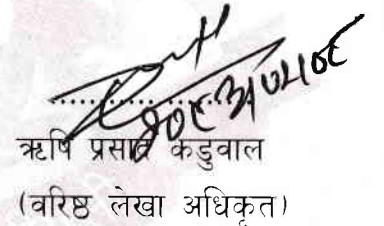 ऋषि प्रसाद कडुवाल
(वरिष्ठ लेखा अधिकृत)